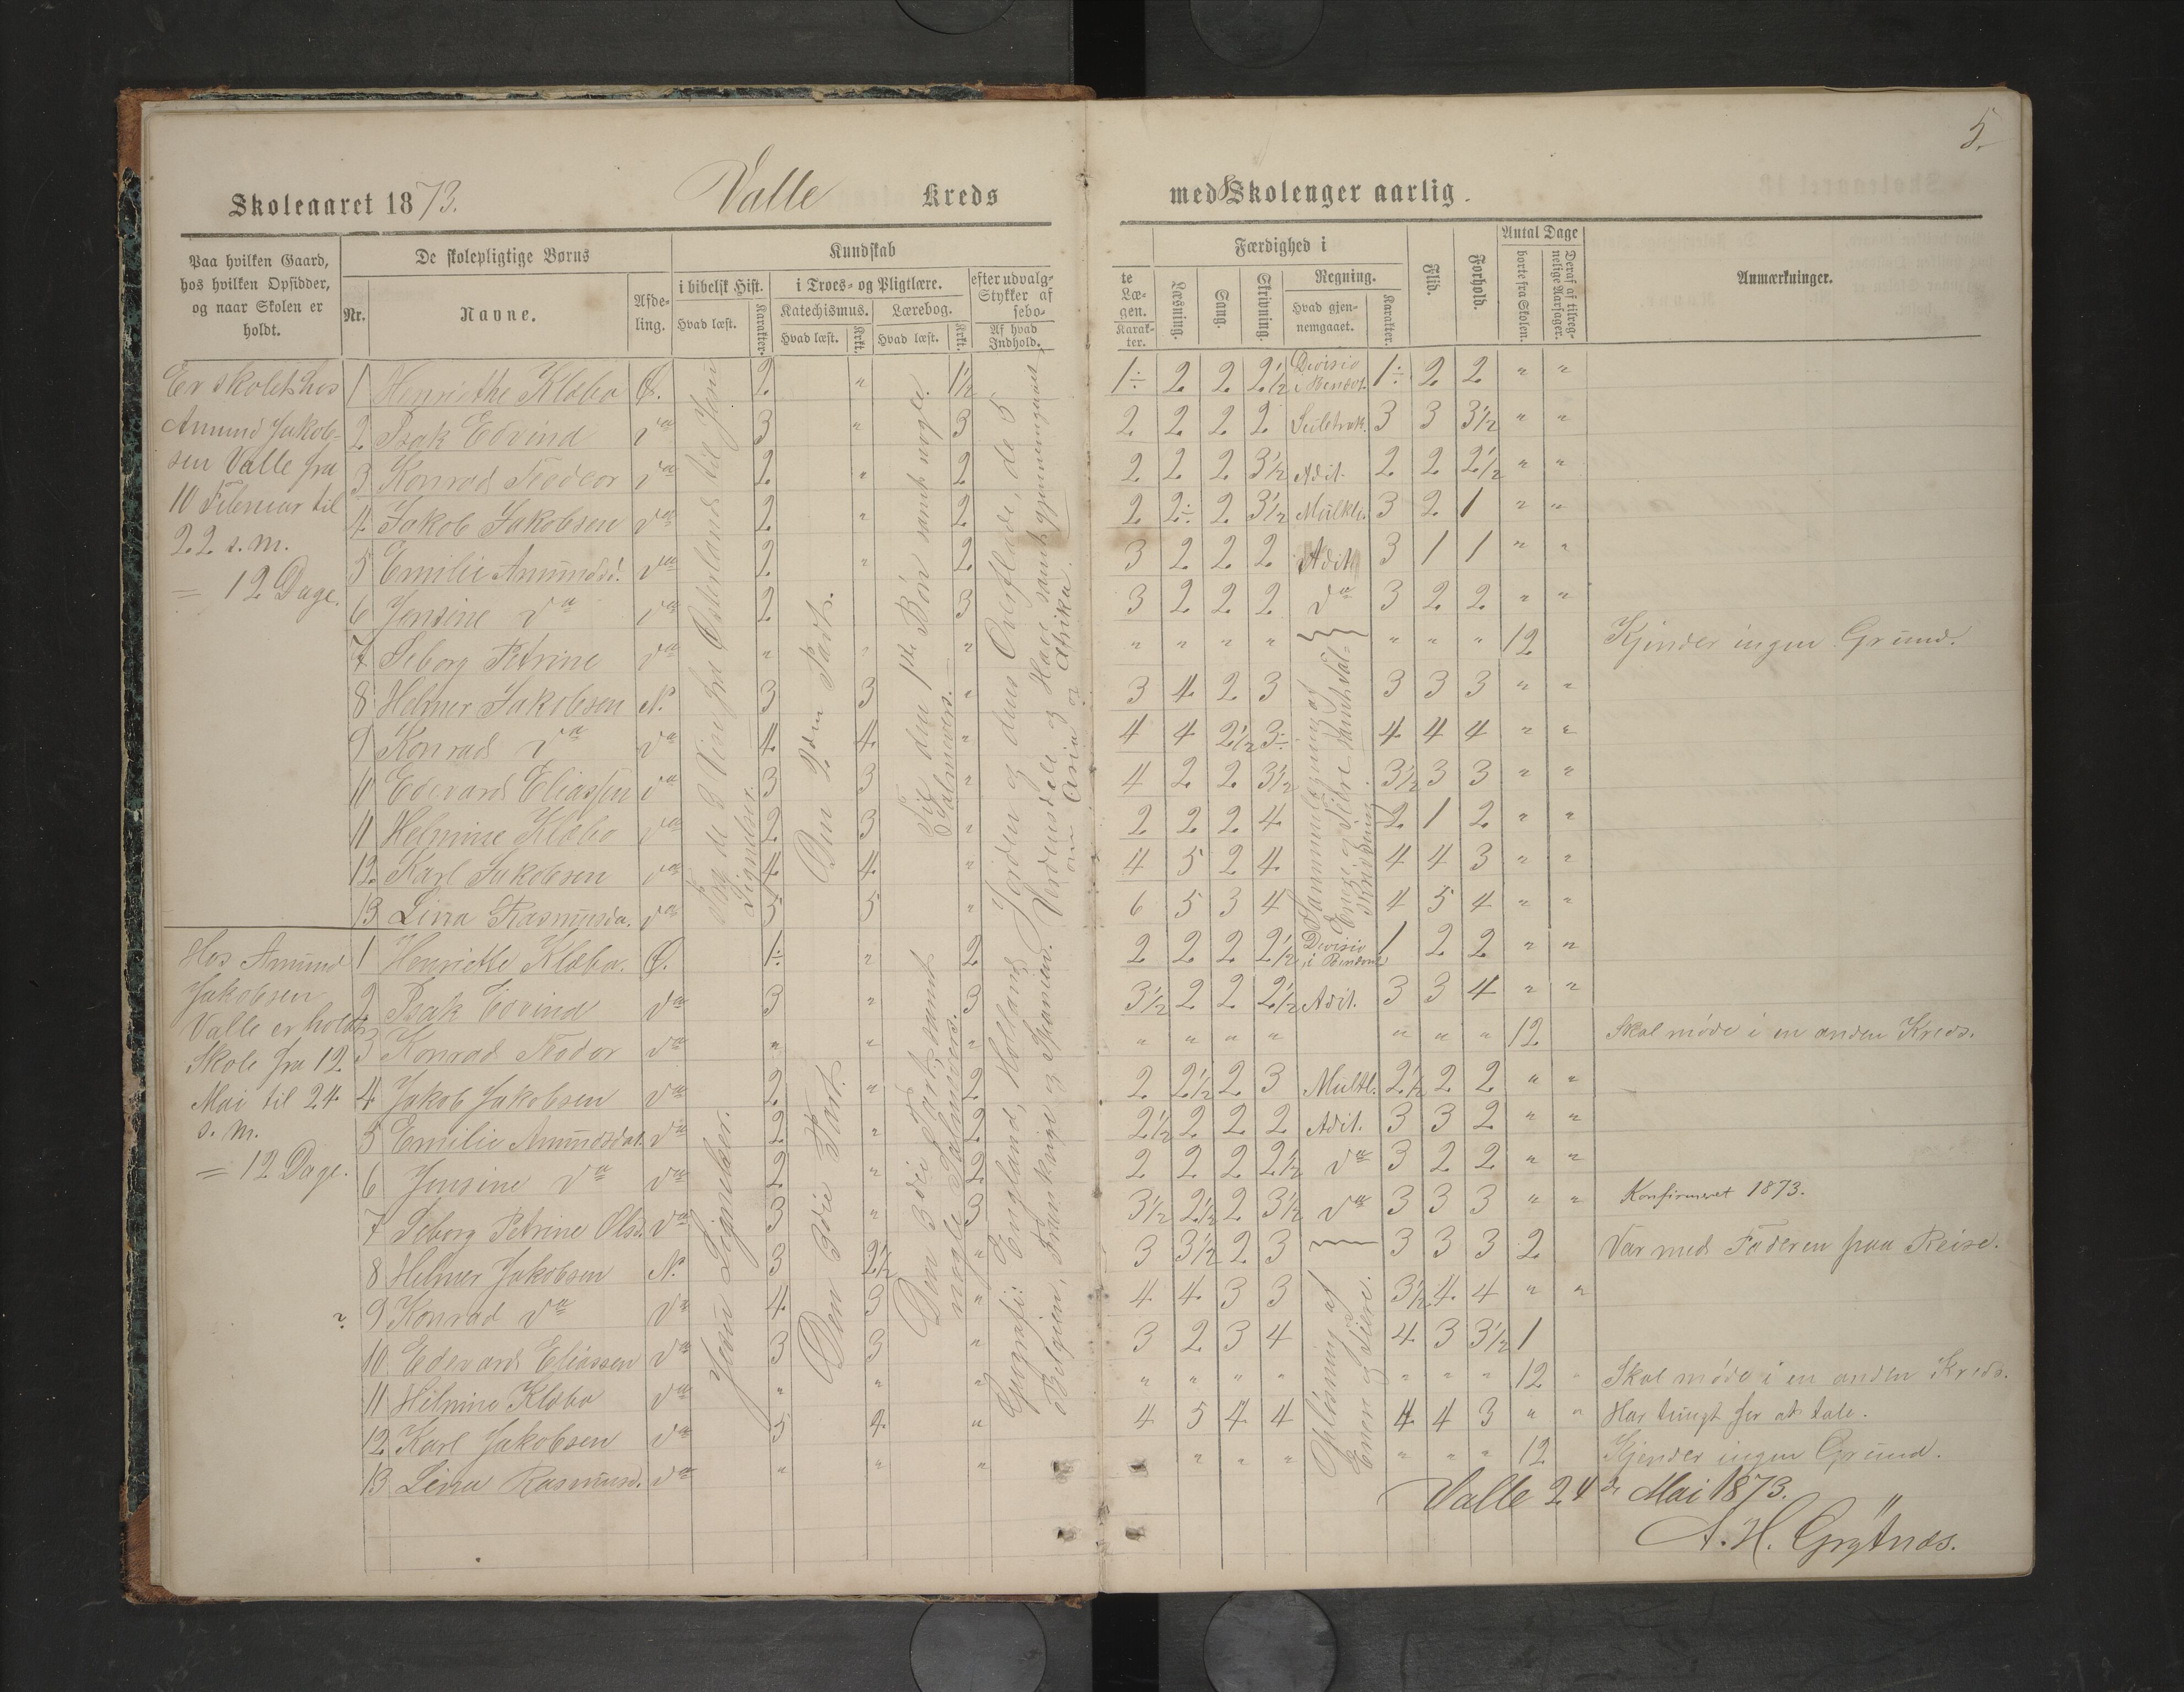 5.
Skoleaaret 1873. Valle Kreds med 8 Skolenger aarlig.
Paa hvilken Gaard, hos hvilken Opsidder, og naar Skolen er holdt.
De skolepligtige Børns
Nr. Navne. Afdeling.
Kundskab
i bibelsk Hist. Hvad læst. Karakter.
i Troes- og Pligtlære.
Katechismus. Hvad læst. Krkt.
Lærebog. Hvad læst. Krkt.
efter udvalgte Stykker af Læsebogen. Af hvad Indhold. Karakter.
Færdighed i
Læsning. Sang. Skrivning.
Regning. Hvad gjennemgaaet. Karakter.
Flid. Forhold.
Antal Dage
borte fra Skolen. Deraf af tilregnelige Aarsager.
Anmærkninger.
Er skolet hos
Amund Jakob-
sen Valle fra
10 Februar til
22 s.m.
= 12 Dage.
1 Henriethe Klæbo Ø. 2 " 1½ 1÷ 2 2 2½ Divisio i Benævt. 1÷ 2 2 " "
2 Isak Edvind da 3 " 3 2 2 2 2 Subtrak. 3 3 3½ " "
3 Konrad Teodor da 2 " 2 2 2 2 3½ Adit. 2 2 2½ " "
4 Jakob Jakobsen da 2 " 2 2 2÷ 2 3½ Multl. 3 2 1 " "
5 Emilie Amundsd. da 2 " 2 3 2 2 2 Adit. 3 1 1 " "
6 Jensine da da 2 " 3 3 2 2 2 da 3 2 2 " "
7 Seborg Petrine da " " " " " " " " " " 12 Kjender ingen Grund.
8 Helmer Jakobsen N. 3 3 " 3 4 2 3 3 3 3 " "
9 Konrad da da 4 4 " 4 4 2½ 3÷ 4 4 4 " "
11 Edevard Eliassen da 3 3 " 4 2 2 3½ 3½ 3 3 " "
11 Helmine Klæbo da 2 3 " 2 2 2 4 2 1 2 " "
12 Karl Jakobsen da 4 4 " 4 5 2 4 4 4 3 " "
13 Lina Rasmusda. da 5 5 " 6 5 3 4 4 5 4 " "
Fra de 3 Vise fra Østerland til Jesu
Lignelser.
Den 2den Part.
Til den 1ste Bøn samt nogle
Salmevers.
Jorden og dens Overflade, de 5
Verdensdele og Have samt gjennemgaaet
om Asia og Afrika.
Sammenlægning af
Enere og Tiere samt Tal-
skrivning.
Hos Amund
Jakobsen
Valle er holdt
Skole fra 12
Mai til 24
s.m.
= 12 Dage.
1 Henriette Klæbo. Ø. 1÷ " 2 2 2 2 2½ Divisio i Benævnt 1 2 2 " "
2 Isak Edvind da 3 " 3 3½ 2 2 2½ Adit. 3 3 4 " "
3 Konrad Teodor da " " " " " " " " " " 12 Skal møde i en anden Kreds.
4 Jakob Jakobsen da 2 " 2 2 2½ 2 3 Multl. 2½ 2 2 " "
5 Emilie Amundsdat. da 2 " 2 2½ 2 2 2 Adit. 3 3 2 " "
6 Jensine da da 2 " 2 2 2 2 2½ da 3 2 2 " "
7 Seborg Petrine Olsd. da 3 " 3 3½ 2½ 2 3½ da 3 3 3 " " Konfirmeret 1873.
8 Helmer Jakobsen N. 3 2½ " 3 3½ 2 3 3 3 3 2 Var med Faderen paa Reise.
9 Konrad da da 4 3 " 4 4 3 3 3½ 4 4 " "
10 Edevard Eliassen da 3 3 " 3 2 3 4 4 3 3½ 1
11 Helmine Klæbo da " " " " " " " " " " 12 " Skal møde i en anden Kreds.
12 Karl Jakobsen da 5 4 " 4 5 4 4 4 4 3 " " Har tungt for at tale.
13 Lina Rasmusd. da " " " " " " " " " 12 Kjender ingen Grund.
Jesu Lignelser.
Den 3die Part.
Den 3die Part, samt
nogle Salmevers.
Geografi: England, Holland
Belgien, Frankrige og Spanien.
Opløsning af
Enere og Tiere.
Valle 24de Mai 1873.
A. H. Grytnæs.